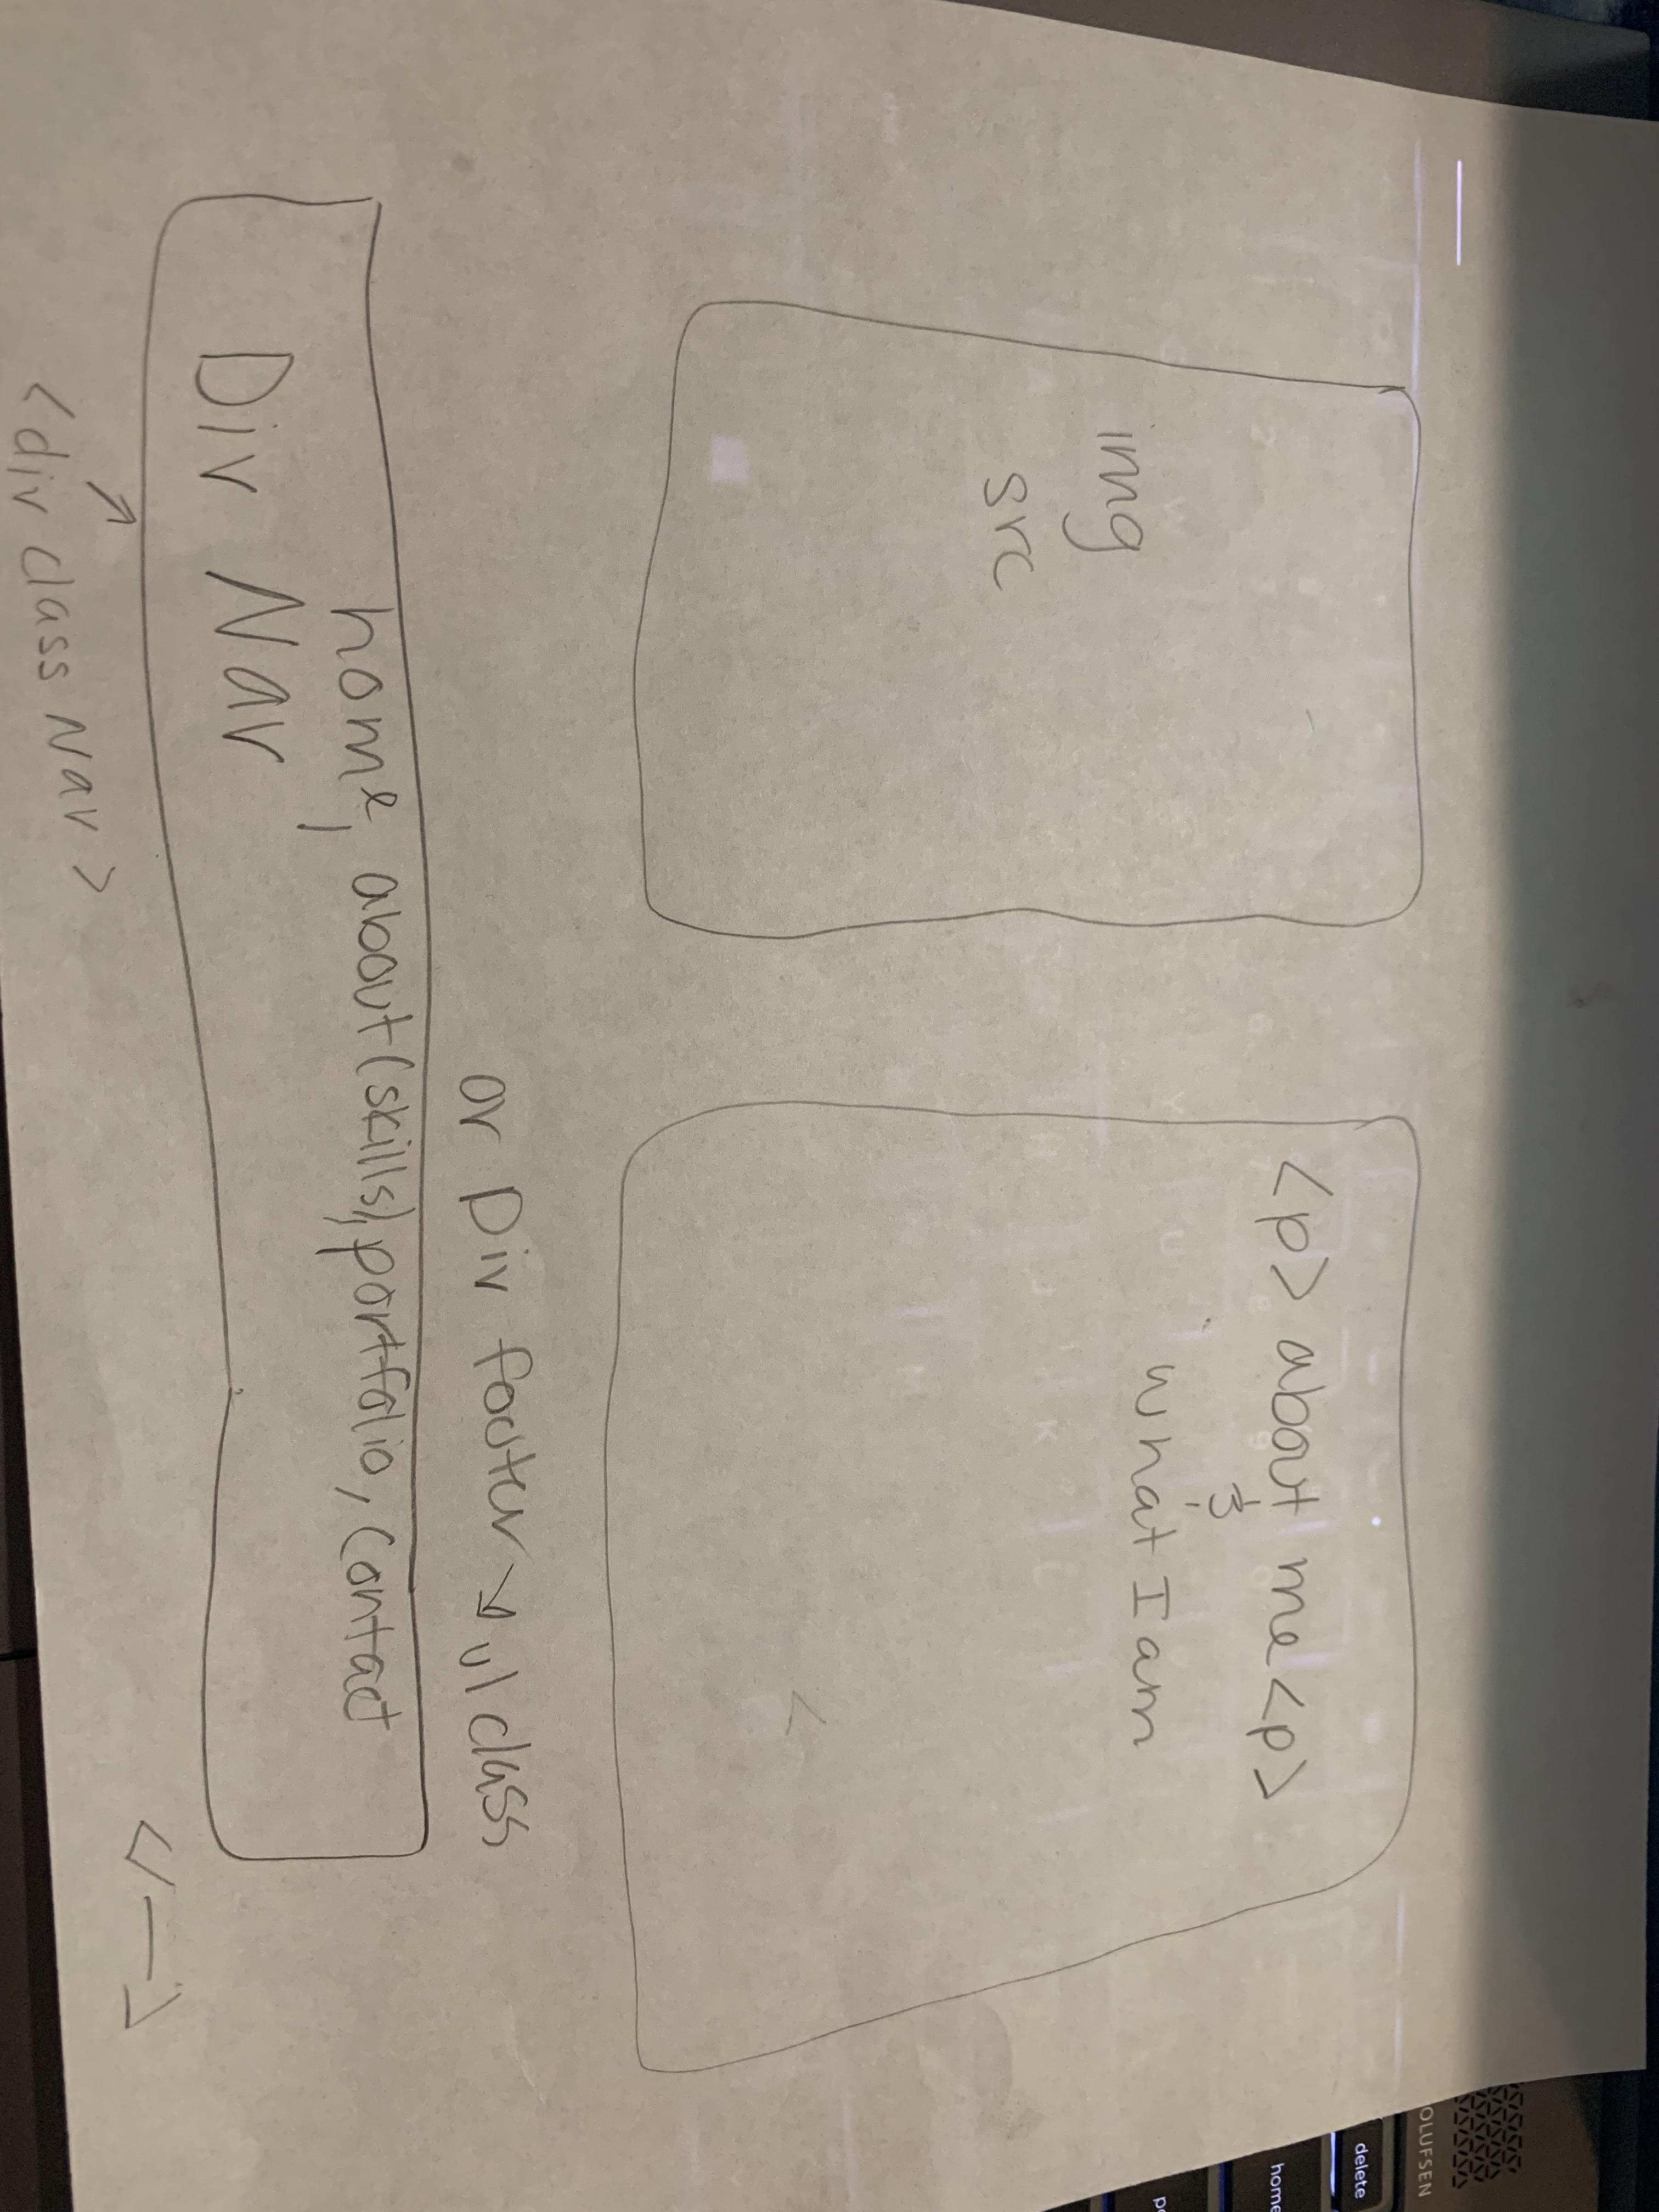 <p> about me <p>
&
what I am
img
src
or Div footer → ul class
home, about (skills), portfolio, contact
Div Nav
<div class Nav>
OLUFSEN
delete
home